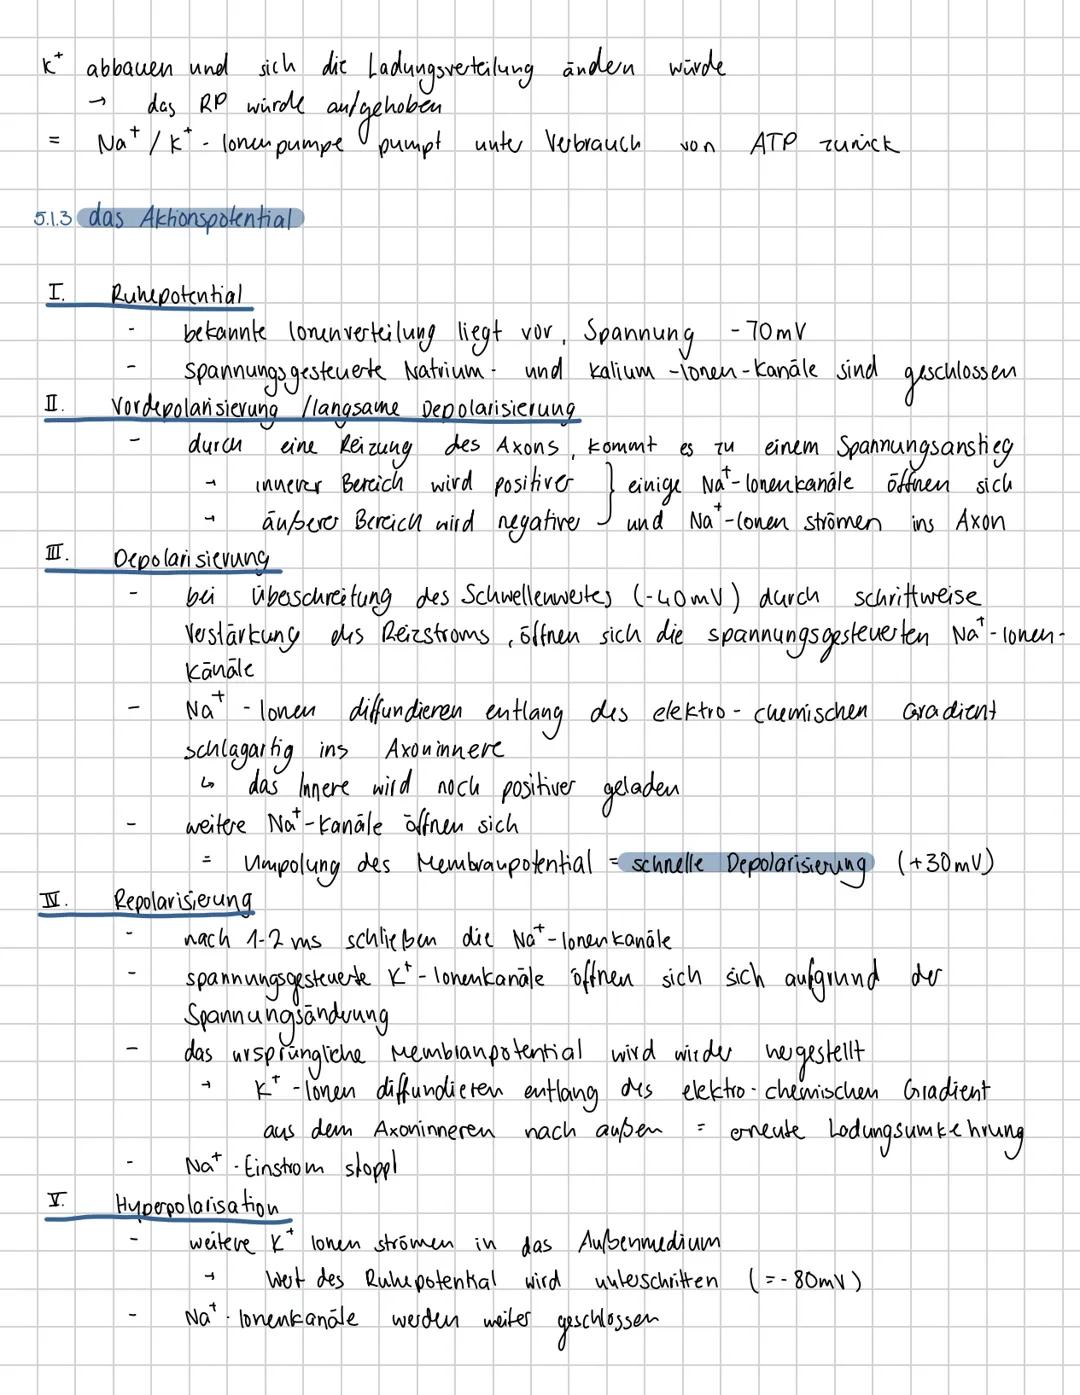 K⁺ abbauen und sich die Ladungsverteilung ändern würde
→ das RP würde aufgehoben
= Na⁺/K⁺-Ionenpumpe pumpt unter Verbrauch von ATP zurück
5.1.3 das Aktionspotential
I. Ruhepotential
- bekannte Ionenverteilung liegt vor, Spannung -70mV
- spannungsgesteuerte Natrium- und Kalium-Ionen-Kanäle sind geschlossen
II. Vordepolarisierung /langsame Depolarisierung
- durch eine Reizung des Axons, kommt es zu einem Spannungsanstieg
→ innerer Bereich wird positiver } einige Na⁺-Ionenkanäle öffnen sich
→ äußerer Bereich wird negativer } und Na⁺-Ionen strömen ins Axon
III. Depolarisierung
- bei überschreitung des Schwellenwertes (-40mV) durch schrittweise
Verstärkung des Reizstroms, öffnen sich die spannungsgesteuerten Na⁺-Ionen-
Kanäle
- Na⁺-Ionen diffundieren entlang des elektro-chemischen Gradient
schlagartig ins Axoninnere
↳ das Innere wird noch positiver geladen
- weitere Na⁺-Kanäle öffnen sich
= Umpolung des Membranpotential = schnelle Depolarisierung (+30mV)
IV. Repolarisierung
- nach 1-2 ms schließen die Na⁺-Ionenkanäle
- spannungsgesteuerte K⁺-Ionenkanäle öffnen sich sich aufgrund der
Spannungsänderung
- das ursprüngliche Membranpotential wird wieder hergestellt
→ K⁺-Ionen diffundieren entlang des elektro-chemischen Gradient
aus dem Axoninneren nach außen = erneute Ladungsumkehrung
- Na⁺-Einstrom stoppt
V. Hyperpolarisation
- weitere K⁺ Ionen strömen in das Außenmedium
→ Wert des Ruhepotential wird unterschritten (=-80mV)
- Na⁺-Ionenkanäle werden weiter geschlossen